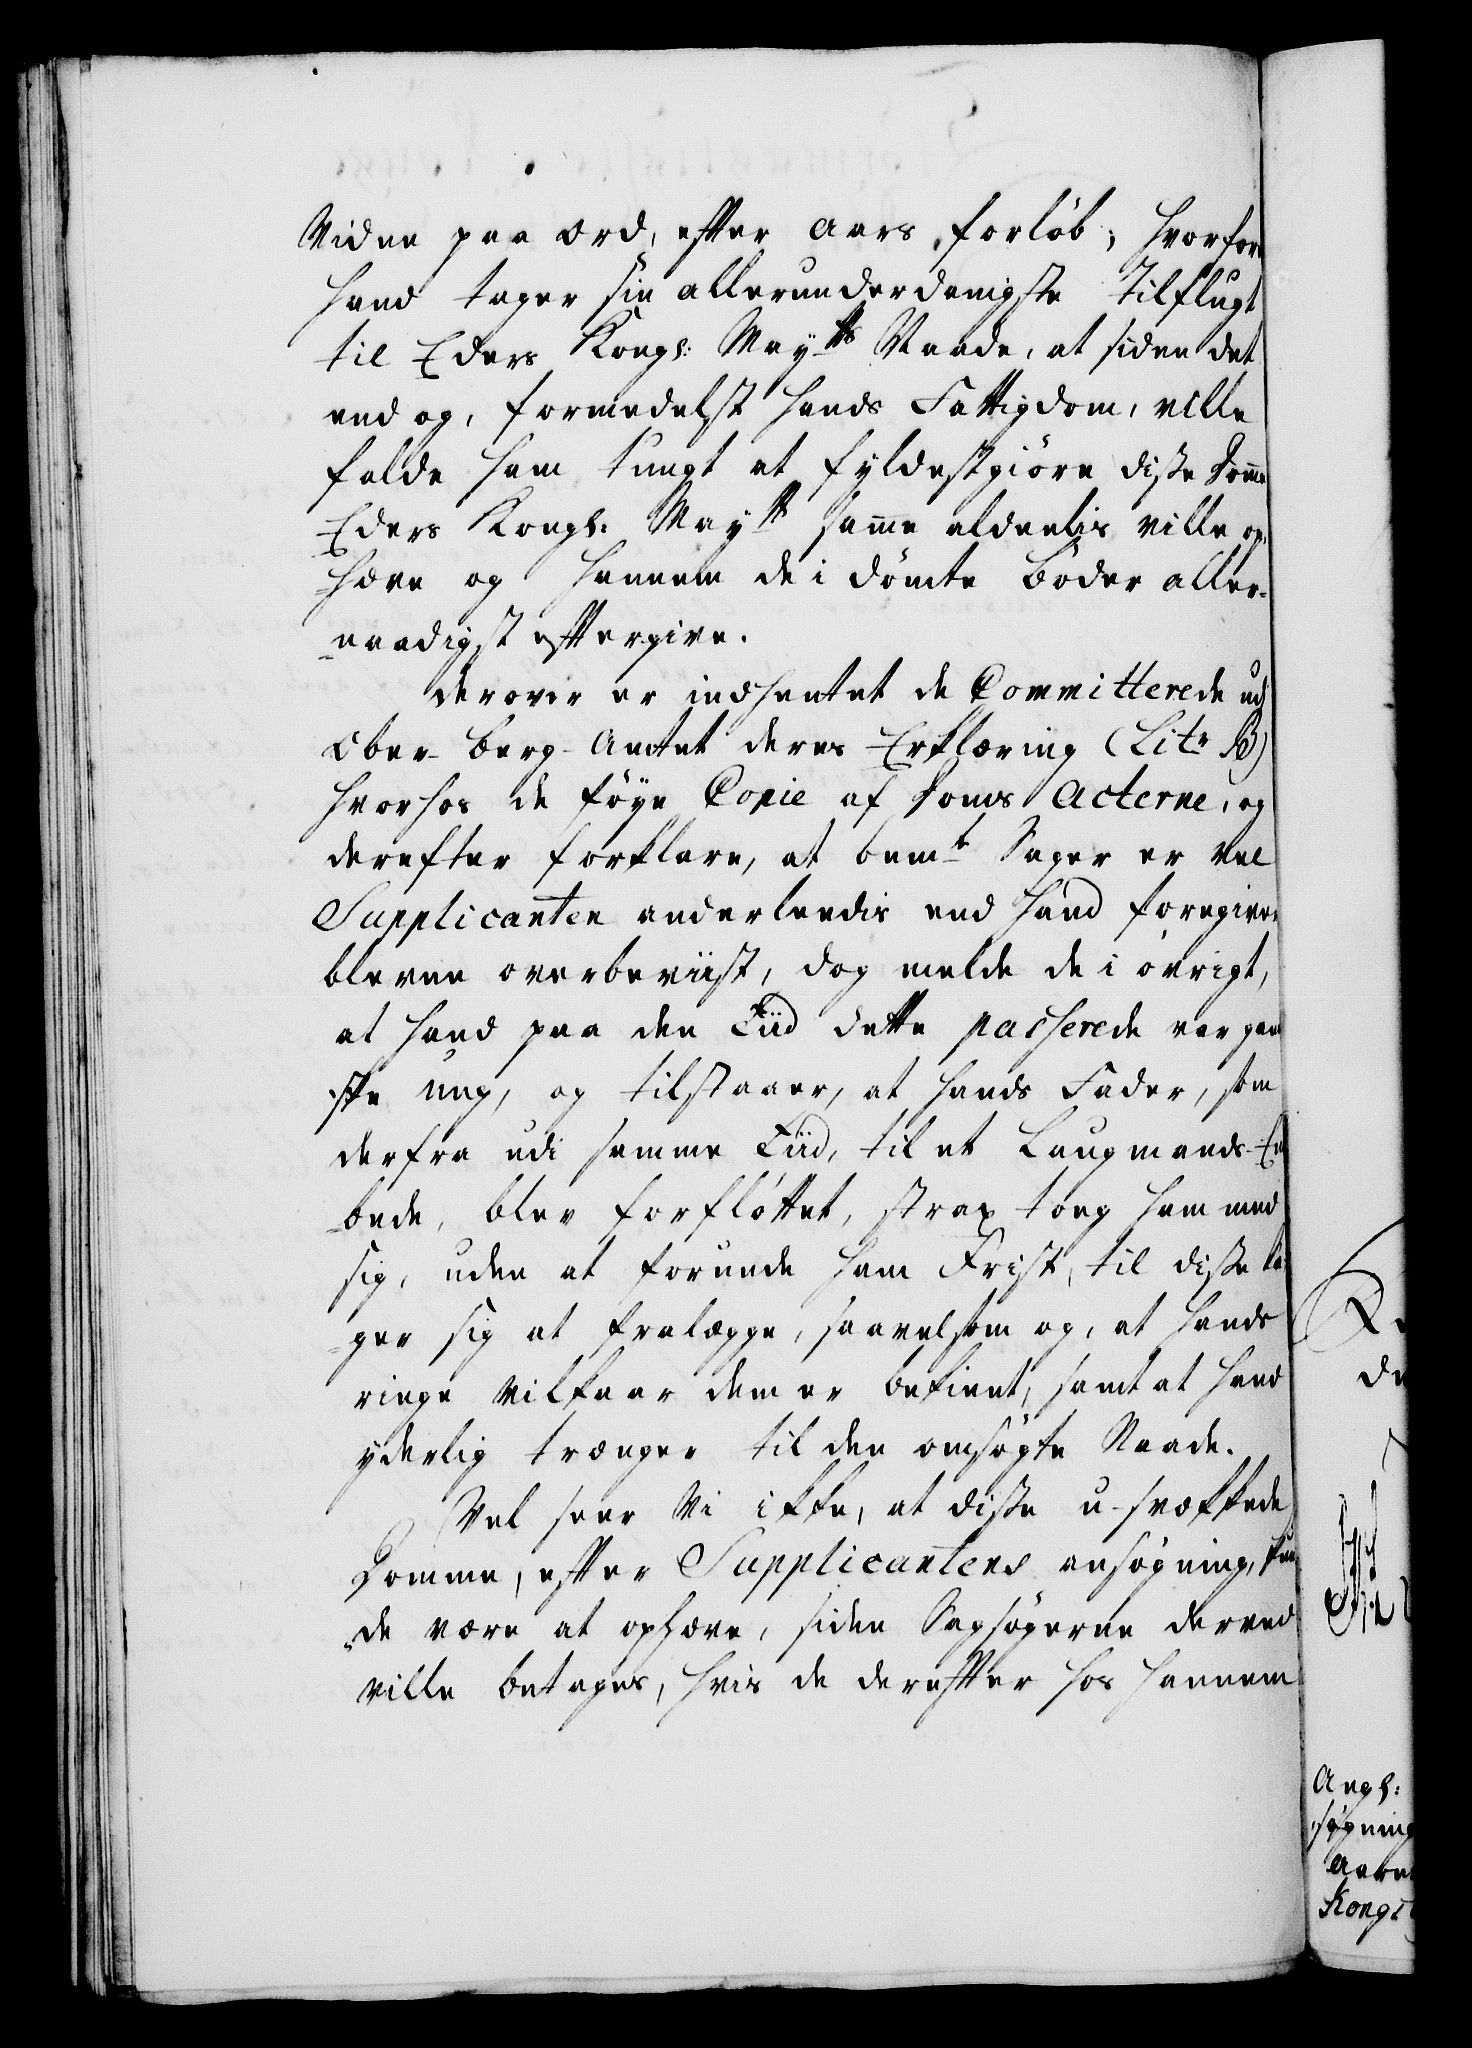 Vidne paa ord, efter Aars forløb; hvorfor
hand tager sin allerunderdanigste Tilflugt
til Eders Kongl: Mayts Naade, at siden det
end og, formedelst hands Fattigdom, ville
falde ham tungt at fyldestgiøre disse Dom̄e
Eders Kongl: Mayt sam̄e aldeelis ville op-
hæve og hannem de i dömte Böder aller-
naadigst eftergive.
Derover er indhentet de Committerede ud
Ober-Berg-Amtet deres Erklæring (Litr B)
hvorhos de føye Copie af Doms Acterne, og
derefter forklare, at bemt Sager er vel
Supplicanten anderleedis end hand foregiver
bleven overbeviist, dog melde de i øvrigt,
at hand paa den Tiid dette passerede var gan-
ske ung, og tilstaaer, at hands Fader, som
derfra udi samme Tiid, til et Laugmands-Em
bede, blev forfløttet, strax toeg ham med
sig, uden at forunde ham Frist, til disse Sa-
ger sig at fralægge, saavelsom og, at hands
ringe Vilkaar dem er bekient, samt at hand
yderlig trænger til den omsøgte Naade.
Vel seer Vi ikke, at disse u-svækkede
Domme, efter Supplicantens ansøgning, kun-
de være at ophæve, siden Sagsøgerne derved
ville betages, hvis de derefter hos hannem
Angl:
søgning
Kongs